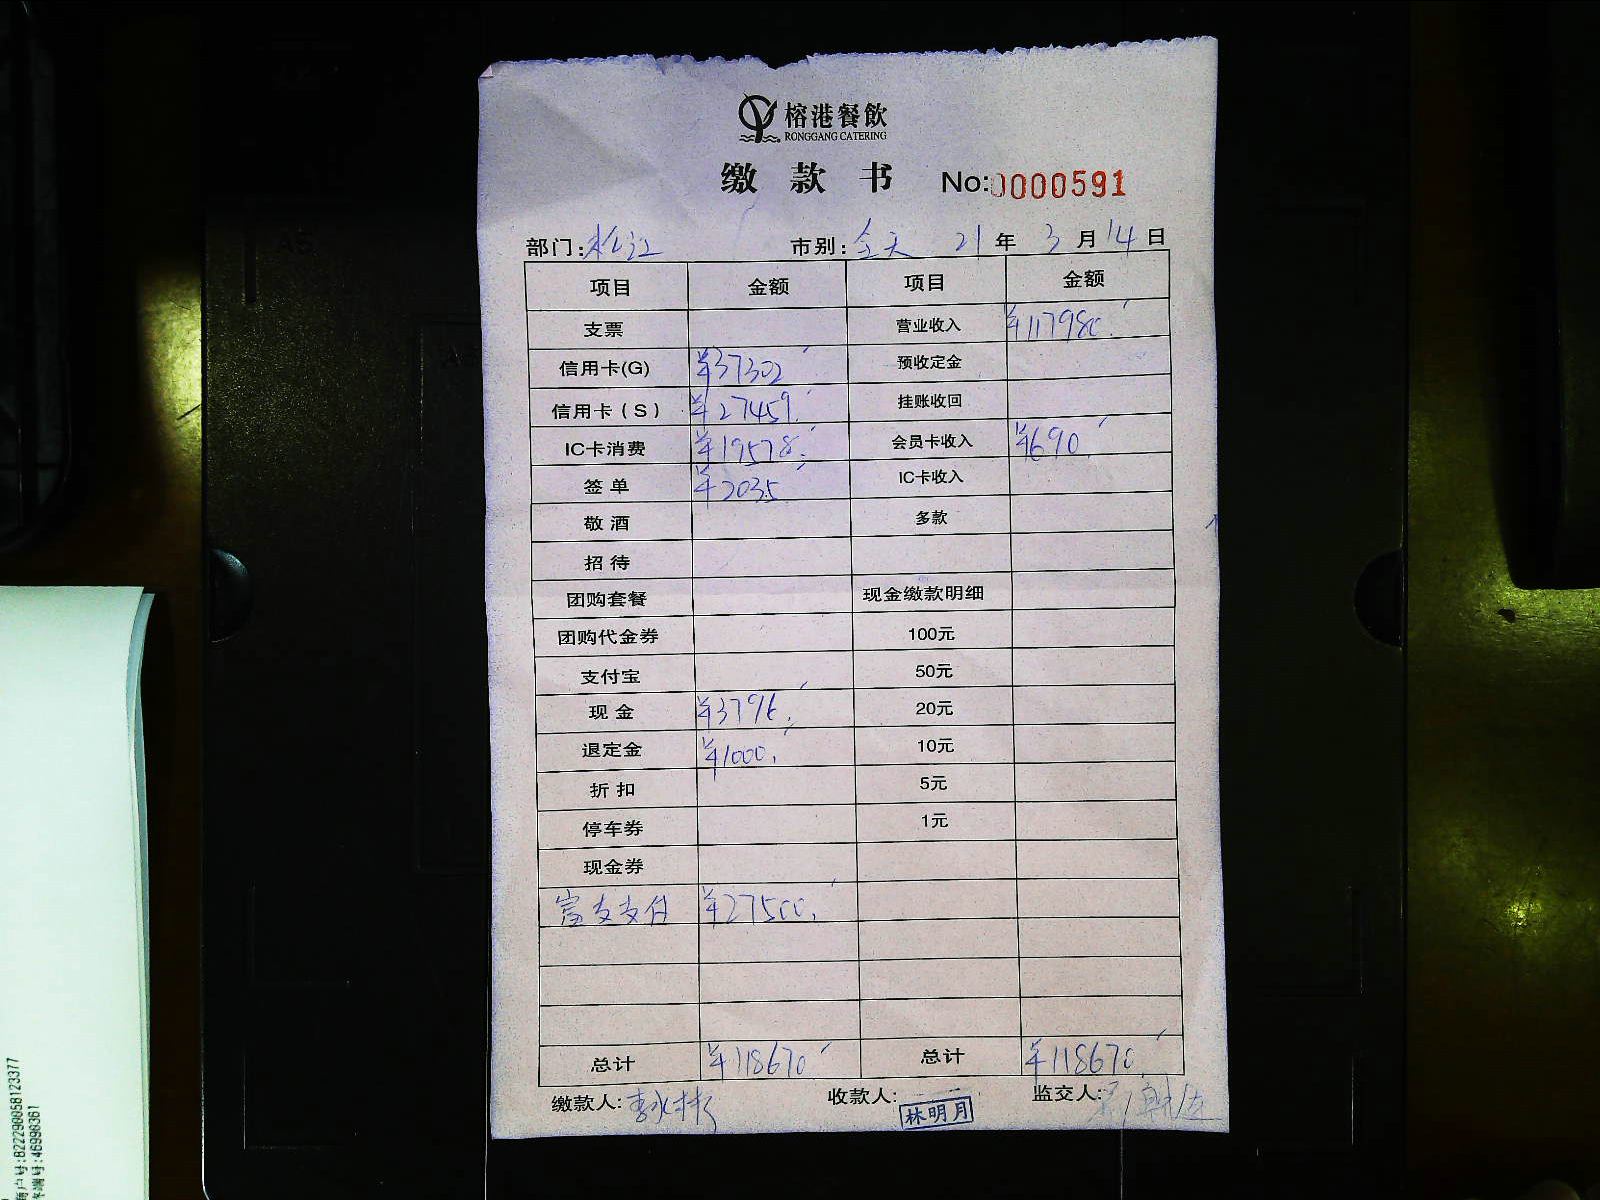 榕港餐飲
RONGGANG CATERING
缴款书 No:0000591
部门:松江 市别:全天 21年3月14日
项目 金额 项目 金额
支票 营业收入 ¥117980.
信用卡(G) ¥37302 预收定金
信用卡(S) ¥27459. 挂账收回
IC卡消费 ¥19578. 会员卡收入 ¥690.
签单 ¥2035 IC卡收入
敬酒 多款
招待
团购套餐 现金缴款明细
团购代金券 100元
支付宝 50元
现金 ¥3796. 20元
退定金 ¥1000. 10元
折扣 5元
停车券 1元
现金券
富友支付 ¥27500.
总计 ¥118670 总计 ¥118670.
缴款人: 收款人: 林明月 监交人:
商户号:822290058123377
终端号:46996361